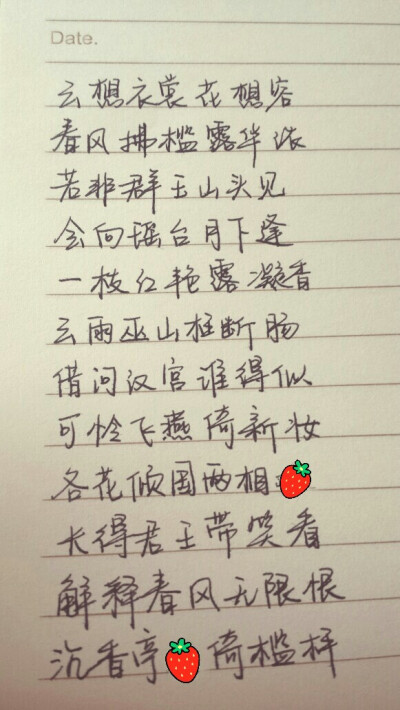 Date.
云想衣裳花想容
春风拂槛露华浓
若非群玉山头见
会向瑶台月下逢
一枝红艳露凝香
云雨巫山枉断肠
借问汉宫谁得似
可怜飞燕倚新妆
各花倾国两相
长得君王带笑看
解释春风无限根
沉香亭倚槛枰